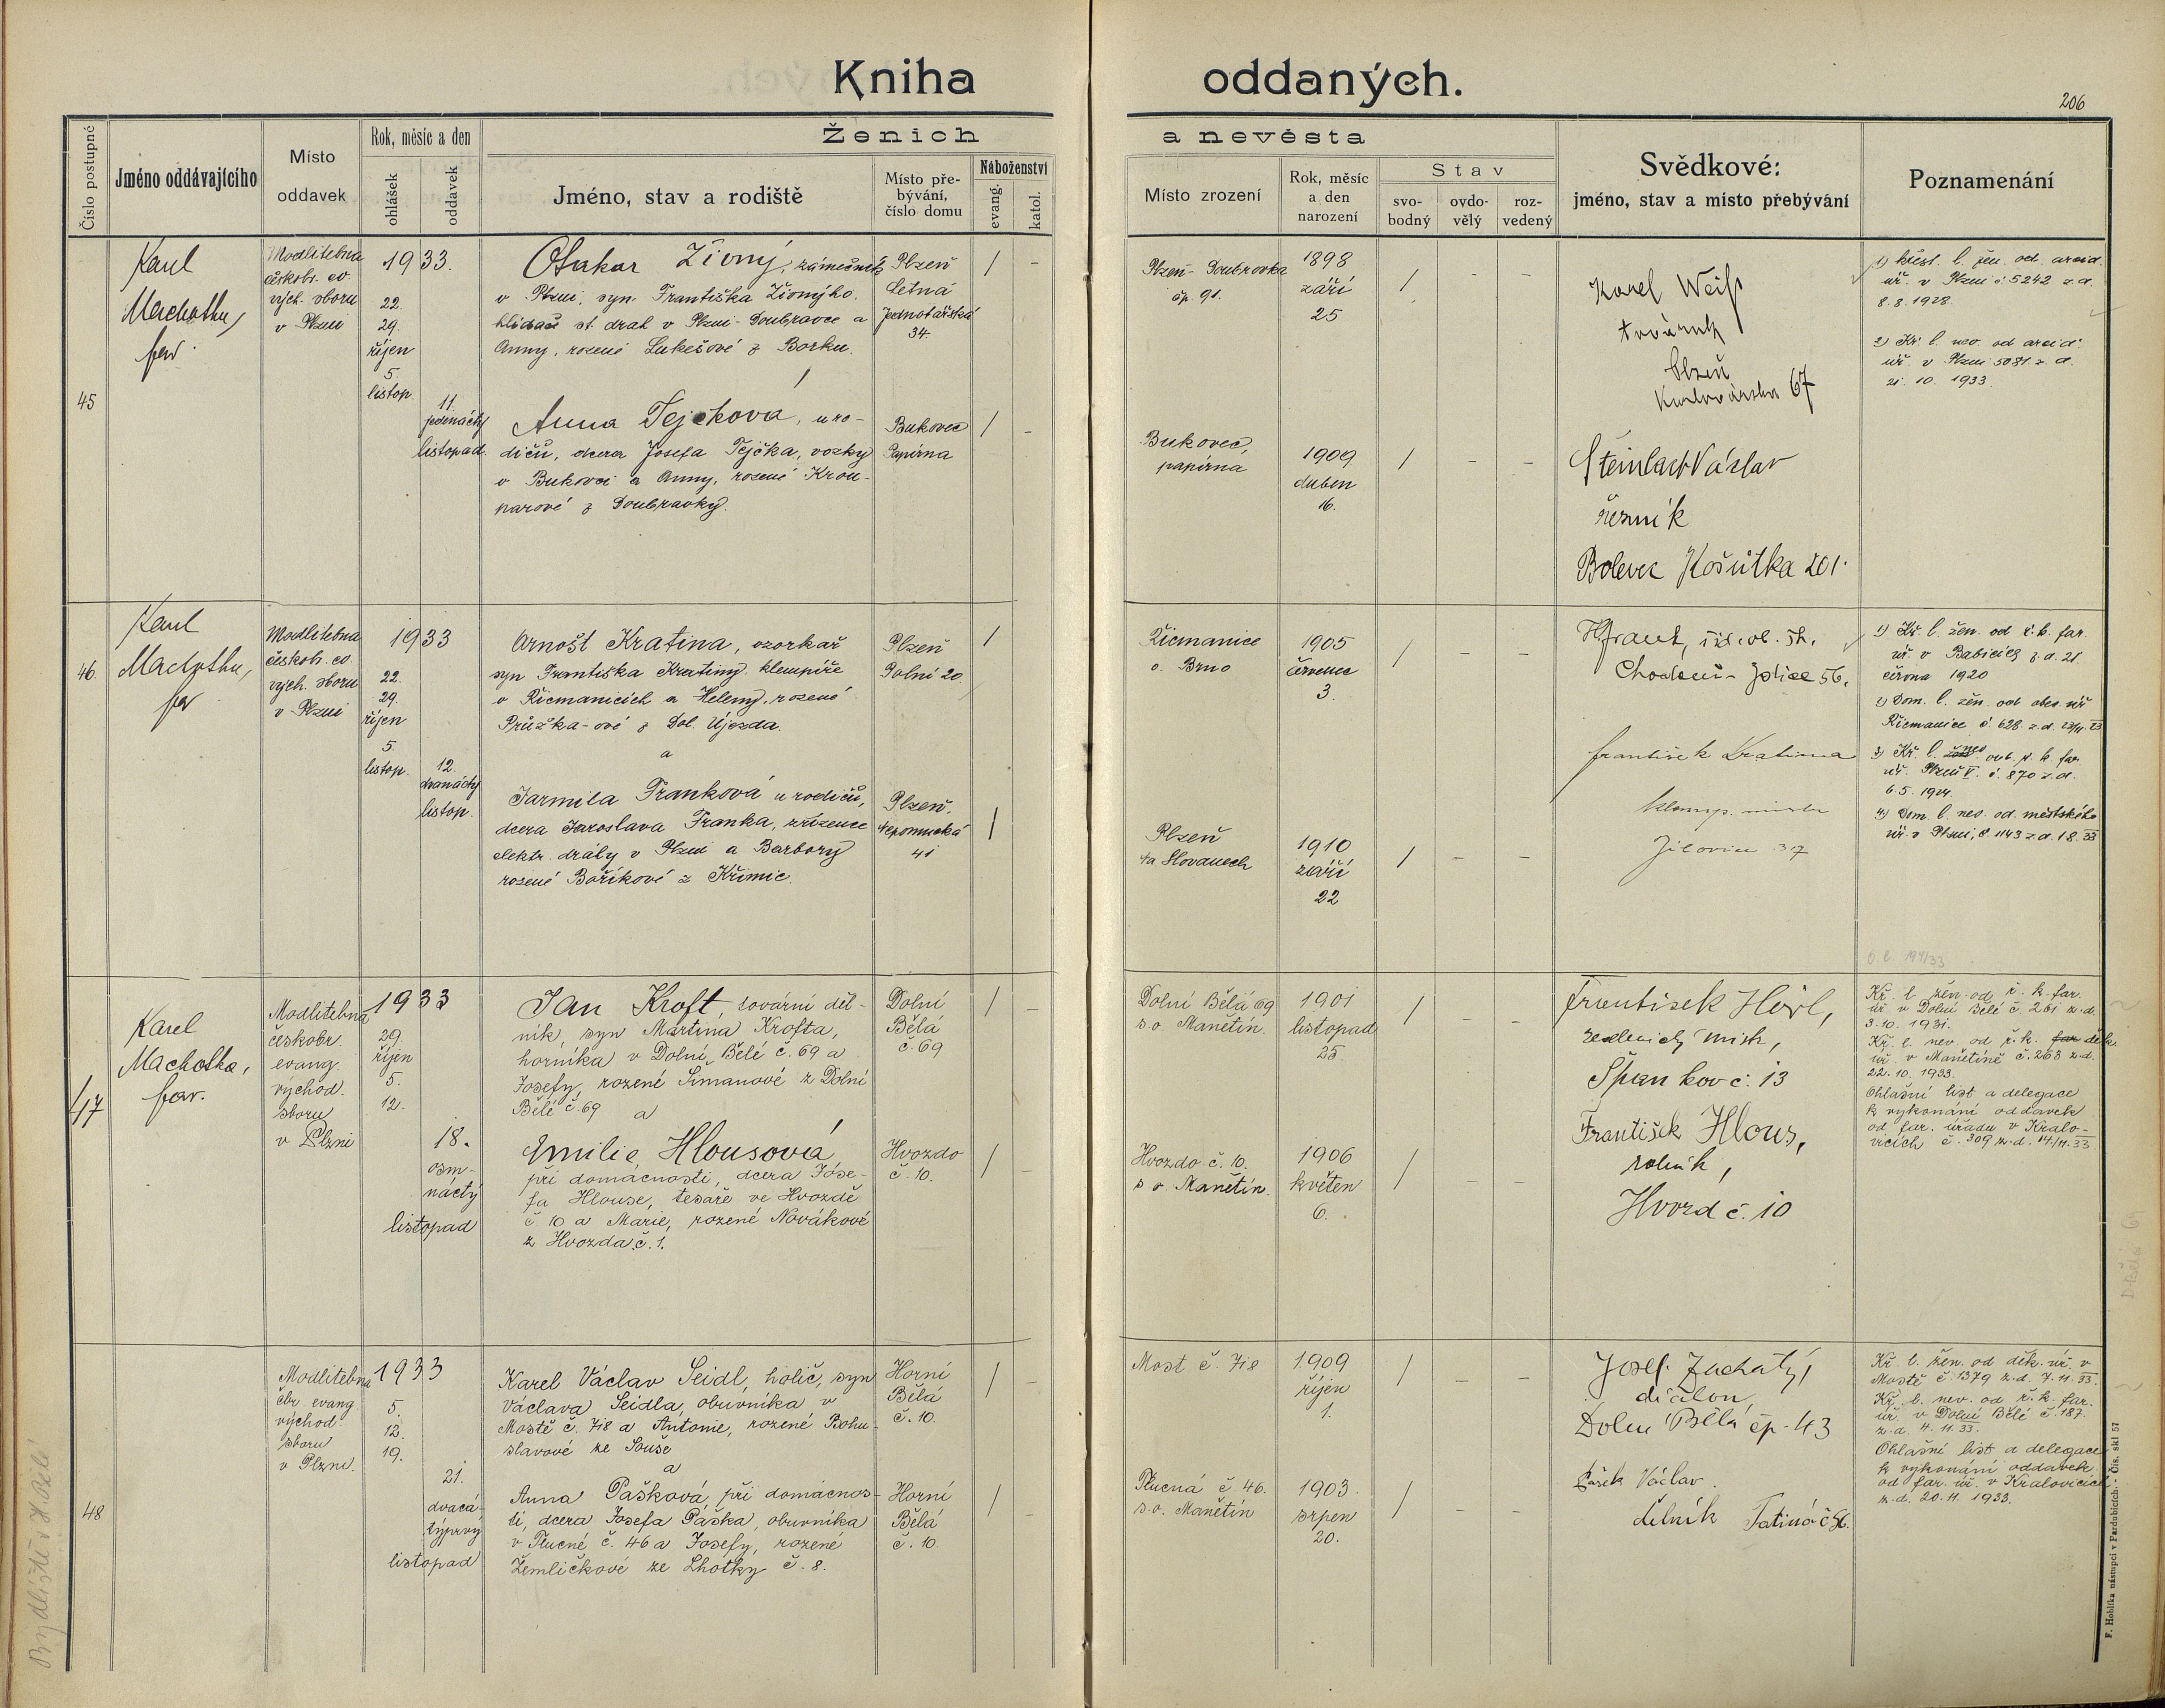 Kniha oddaných.
206
Číslo postupné
Jméno oddávajícího
Místo
oddavek
Rok, měsíc a den
ohlášek
oddavek
Ženich a nevěsta
Jméno, stav a rodiště
Místo pře-
bývání,
číslo domu
Náboženství
evang.
katol.
Místo zrození
Rok, měsíc
a den
narození
Stav
svo-
bodný
ovdo-
vělý
roz-
vedený
Svědkové:
jméno, stav a místo přebývání
Poznamenání
45
Karel
Machotka,
far.
Modlitebna
českobr. ev.
vých. sboru
v Plzni
1933.
22.
29.
říjen
5.
listop.
11.
jedenáctý
listopad.
Otakar Živný, zámečník
v Plzni, syn Františka Živnýho,
hlídače st. drah v Plzni-Doubravce a
Anny, rozené Lukešové z Borku.
Plzeň
Letná
Jednotářská
34.
/ -
Plzeň-Doubravka
čp. 91.
1898
září
25
/ - -
Anna Tejčková, u ro-
dičů, dcera Josefa Tejčka, vozky
v Bukovci a Anny, rozené Krou-
parové z Doubravky.
Bukovec
Papírna
/ -
Bukovec,
papírna
1909
duben
16.
/ - -
Karel Weiß
továrník
Plzeň
Karlovarská 67
Václav
řezník
Bolevec Košutka 201.
1) křest. l. žen. od arcid.
úř. v Plzni č 5242 z d.
8.8.1928.
2) Kř. l. nev. od arcid.
úř. v Plzni 5081 z. d.
21. 10. 1933.
46.
Karel
Machotka,
far
Modlitebna
českobr. ev.
vých. sboru
v Plzni
1933
22.
29.
říjen
5.
listop.
12.
dvanáctý
listop.
Arnošt Kratina, vzorkař
syn Františka Kratiny, klempíře
v Řicmanicích a Heleny, rozené
Průžka-ové z Dol. Újezda.
a
Plzeň
Polní 20
/
Řicmanice
o. Brno
1905
červenec
3.
/ - -
Jarmila Franková u rodičů,
dcera Jaroslava Franka, zřízence
elektr. dráhy v Plzni a Barbory
rozené Boříkové z Křimic.
Plzeň,
Nepomucká
41
/
Plzeň
Na Slovanech
1910
září
22
/ - -
56.
František Kratina
klemp. mistr
317
1) Kř. l. žen. od ř. k. far.
úř. v Babicích z. d. 21.
června 1920
2) Dom. l. žen. od obec. úř
Řicmanice č. 628. z. d.
3) Kř. l. nev. od ř. k. far.
úř. Plzeň V. č. 870 z. d.
6.5. 1924.
4) Dom. l. nev. od městského
úř. v Plzni, č. 1143 z d.
47
Karel
Machotka,
far.
Modlitebna
českobr.
evang.
východ.
sboru
v Plzni
1933
29.
říjen
5.
12.
18.
osm-
náctý
listopad
Jan Kroft, tovární děl-
ník, syn Martina Krofta,
horníka v Dolní Bělé č. 69 a
Josefy, rozené Šimanové z Dolní
Bělé č. 69 a
Dolní
Bělá
č. 69
/ -
Dolní Bělá 69
s.o. Manětín.
1901
listopad
25.
/ - -
Emilie Hlousová
při domácnosti, dcera Jose-
fa Hlouse, tesaře ve Hvozdě
č. 10 a Marie, rozené Novákové
z Hvozda č. 1.
Hvozdo
č. 10.
/ -
Hvozdo č. 10.
s o. Manětín.
1906
květen
6.
/ - -
František
zednický mistr,
Špankov č. 13
František Hlous,
rolník,
Hvozd č. 10
Kř. l. žen. od ř. k. far.
úř v Dolní Bělé č. 261 z. d.
3.10. 1931.
Kř. l. nev. od ř. k. far děk.
úř. v Manětíně č. 268 z. d.
22. 10. 1933.
Ohlašní list a delegace
k vykonání oddavek
od far. úřadu v Kralo-
vicích č. 309 z. d. 14/11.33
48
Modlitebna
čbr. evang
východ.
sboru
v Plzni.
1933
5.
12.
19.
21.
dvacá-
týprvý
listopad
Karel Václav Seidl, holič, syn
Václava Seidla, obuvníka v
Mostě č. 718 a Antonie, rozené Bohu-
slavové ze Souše
a
Horní
Bělá
č. 10.
/ -
Most č. 718
1909
říjen
1.
/ - -
Anna Pašková, při domácnos-
ti, dcera Josefa Paška, obuvníka
v Plucné č. 46 a Josefy, rozené
Žemličkové ze Lhotky č. 8.
Horní
Bělá
č. 10.
/ -
Plucná č 46.
s.o. Manětín
1903.
srpen
20.
/ - -
Josef Zachatý,
Dolní Bělá čp. 43
Pašek Václav.
dělník
Kř. l. žen. od děk. úř. v
Mostě č. 1379 z. d. 7. 11. 33.
Kř. l. nev. od ř. k. far.
úř. v Dolní Bělé č. 187.
z. d. 4. 11. 33.
Ohlašní list a delegace
k vykonání oddavek
od far. úř. v Kralovicích
z. d. 20. 11. 1933.
F. Hoblíka nástupci v Pardubicích. - Čís. skl 57